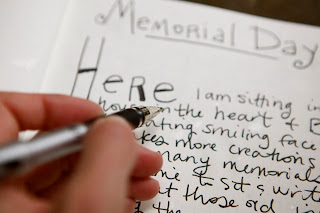 Memorial Day
HeRe I am sitting in
house in the heart of B
ting smiling face
kes more creations
many memorials
me to sit & writ
at those old
the